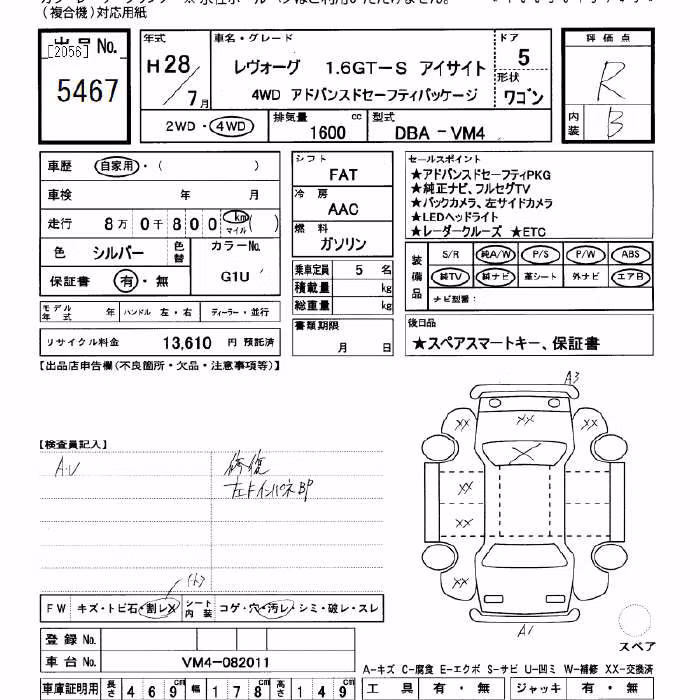 (複合機)対応用紙
出品 No.
[2056]
5467
年式
H28/7月
車名・グレード
レヴォーグ 1.6GT-S アイサイト
4WD アドバンスドセーフティパッケージ
ドア
5
形状
ワゴン
2WD・4WD
排気量 1600 cc
型式 DBA-VM4
評価点
R
内装
B
車歴 自家用・( )
車検 年 月
走行 8万0千800 km マイル ( )
色 シルバー 色替
カラーNo. G1U
保証書 有・無
モデル年式 年 ハンドル 左・右 ディーラー・並行
リサイクル料金 13,610 円 預託済
シフト
FAT
冷房
AAC
燃料
ガソリン
乗車定員 5 名
積載量 kg
総重量 kg
書類期限
月 日
セールスポイント
★アドバンスドセーフティPKG
★純正ナビ、フルセグTV
★バックカメラ、左サイドカメラ
★LEDヘッドライト
★レーダークルーズ ★ETC
装備品
S/R 純A/W P/S P/W ABS
純TV 純ナビ 革シート 外ナビ エアB
ナビ型番:
後日品
★スペアスマートキー、保証書
【出品店申告欄(不良箇所・欠品・注意事項等)】
【検査員記入】
A・U
修復
左Fインパネ BP
FW キズ・トビ石・割レX シート内装 コゲ・穴・汚レ・シミ・破レ・スレ
登録 No.
車台 No. VM4-082011
車庫証明用 長さ 469cm 幅 178cm 高さ 149cm
A3
XX
XX
XX
X
XX
XX
XX
XX
A1
スペア
A-キズ C-腐食 E-エクボ S-サビ U-凹ミ W-補修 XX-交換済
工具 有・無 ジャッキ 有・無